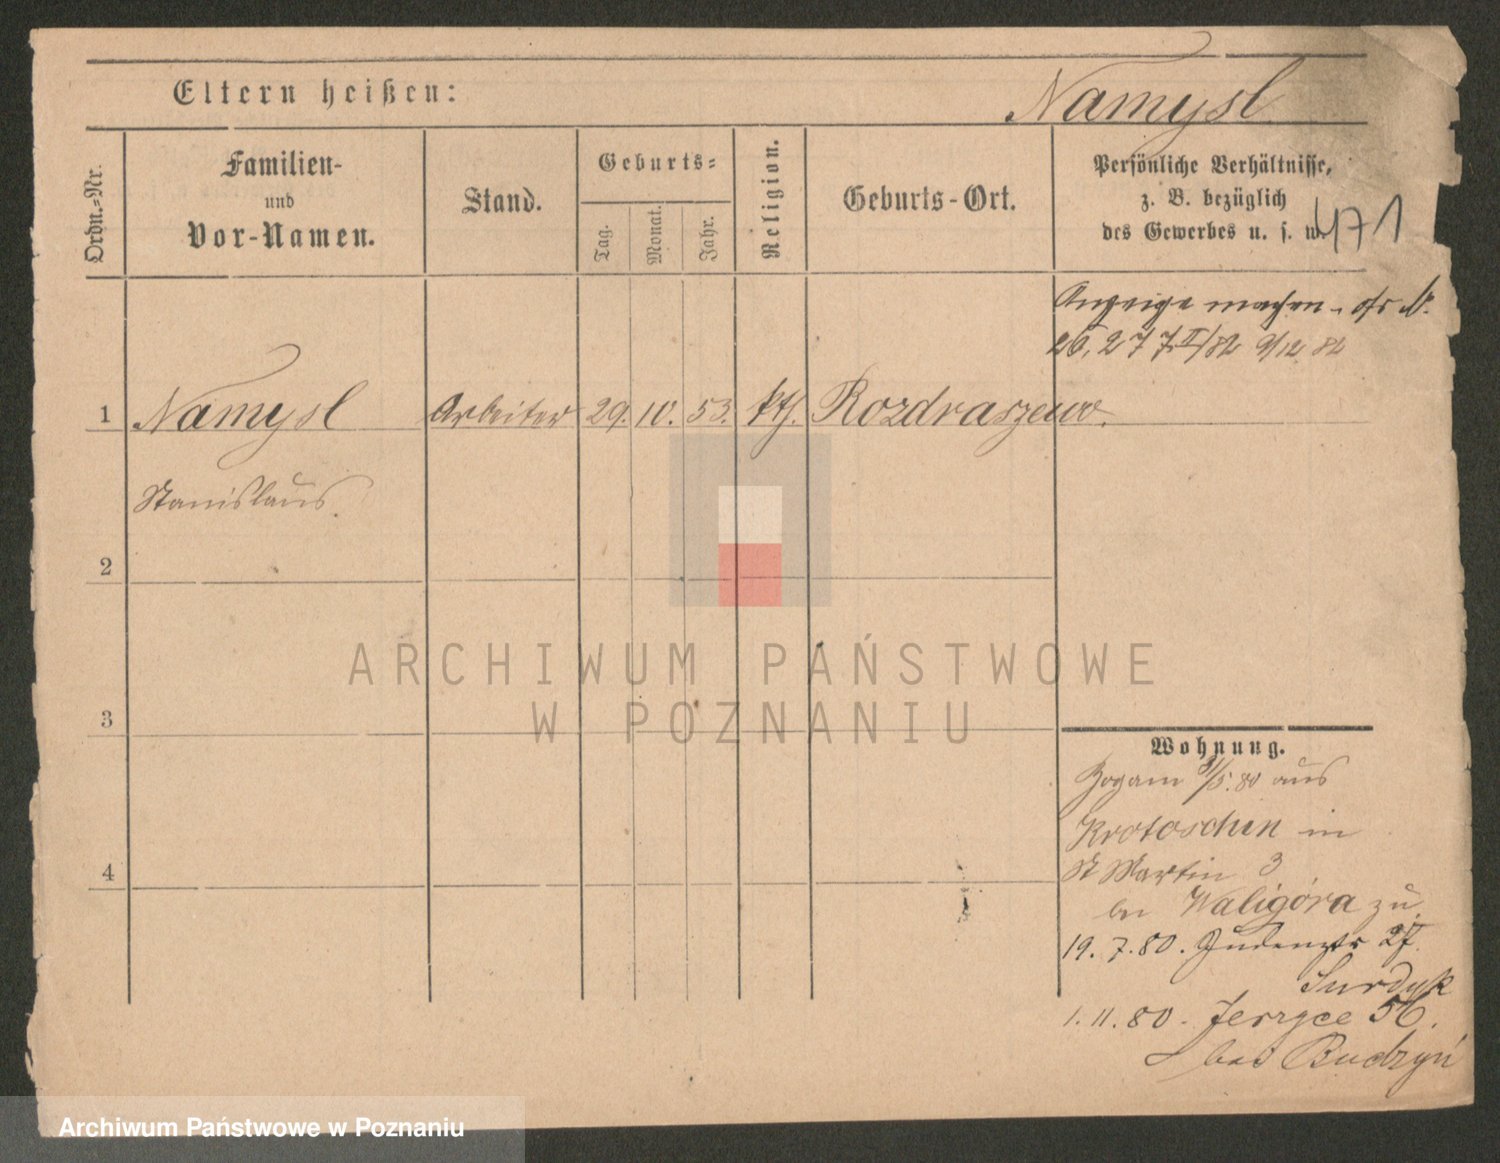 Eltern heißen:
Namysl
Ordn.-Nr.
Familien-
und
Vor-Namen.
Stand.
Geburts-
Tag.
Monat.
Jahr.
Religion.
Geburts-Ort.
Persönliche Verhältnisse,
z. B. bezüglich
des Gewerbes u. s. w.
471
Anzeige machen
26, 27 7.II/82 9/12 82
1 Namysl Arbeiter 29. 10. 53. kth. Rozdraszewo.
Stanislaus.
2
ARCHIWUM PAŃSTWOWE
W POZNANIU
3
Wohnung.
Zogam 3/5. 80 aus
Krotoschin in
St Martin 3
bei Waligóra zu
19. 7. 80. Judenstr 27.
Surdyk
4
1. 11. 80. Jerzyce 56.
bei Budzyń
Archiwum Państwowe w Poznaniu